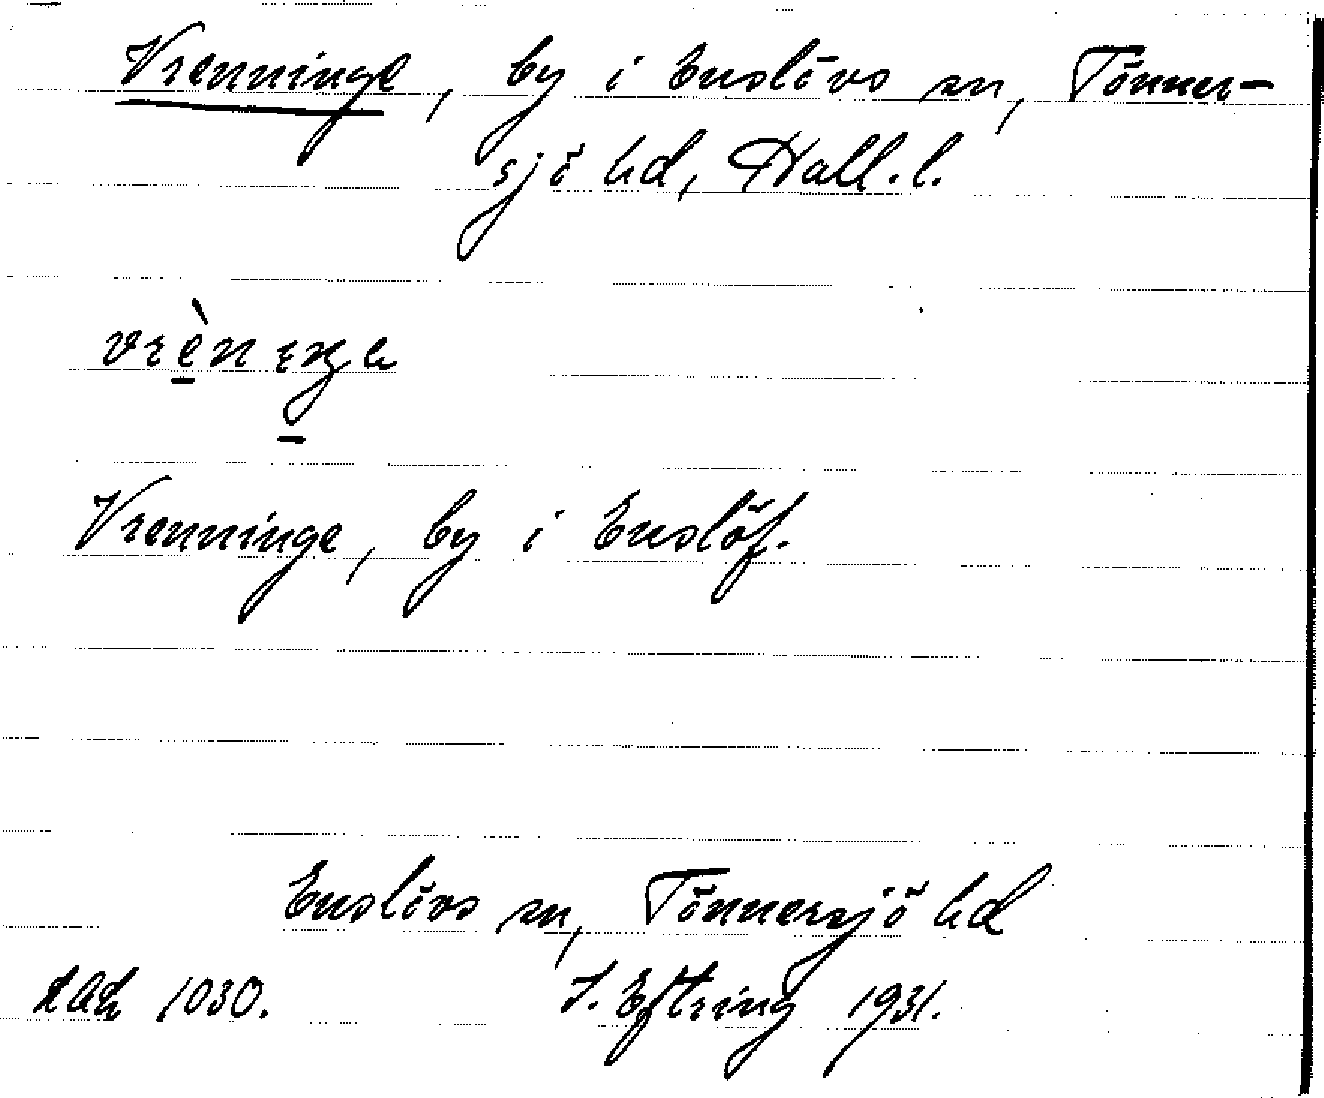 Vrenninge, by i Enslövs sn, Tönner-
sjö hd, Hall. l.
Vrenninge, by i Enslöf.
Enslövs sn, Tönnersjö hd
1030. J. Eftring 1931.